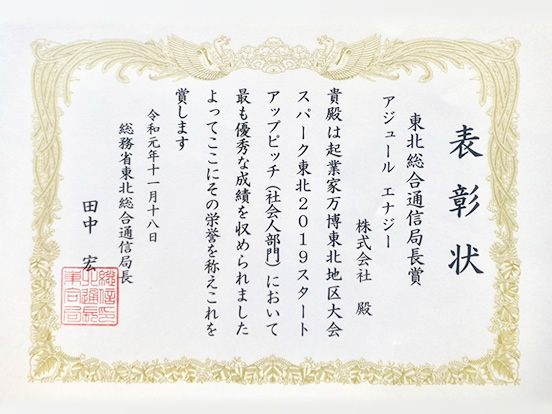 表彰状
東北総合通信局長賞
アジュール エナジー
株式会社 殿
貴殿は起業家万博東北地区大会
スパーク東北2019スタート
アップピッチ（社会人部門）において
最も優秀な成績を収められました
よってここにその栄誉を称えこれを
賞します
令和元年十一月十八日
総務省東北総合通信局長
田中 宏